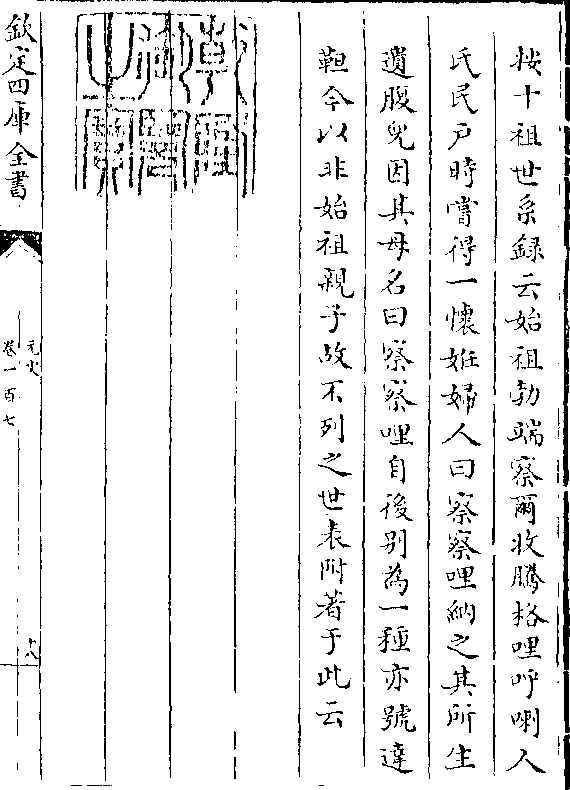 按十祖世系録云始祖勃端察爾收騰格哩呼喇人
氏民戸時嘗得一懐妊婦人曰察察哩納之其所生
遺腹兒因其母名曰察察哩自後别為一種亦號達
靼今以非始祖親子故不列之世表附著于此云
欽定四庫全書
元史
卷一百七
十八